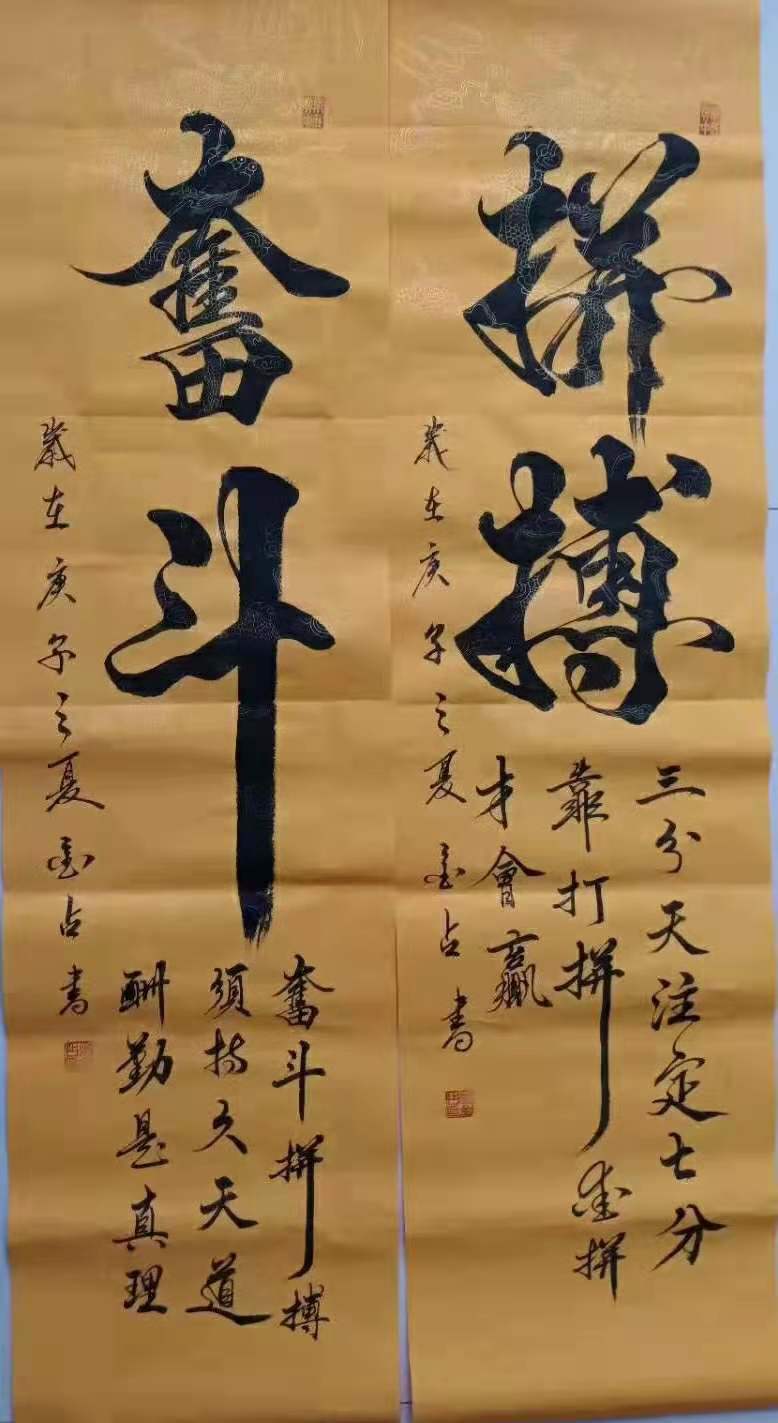 拼搏
三分天注定七分
靠打拼愛拼
才會贏
歲在庚子之夏金占書
奮斗
奮斗拼搏
須持久天道
酬勤是真理
歲在庚子之夏金占書